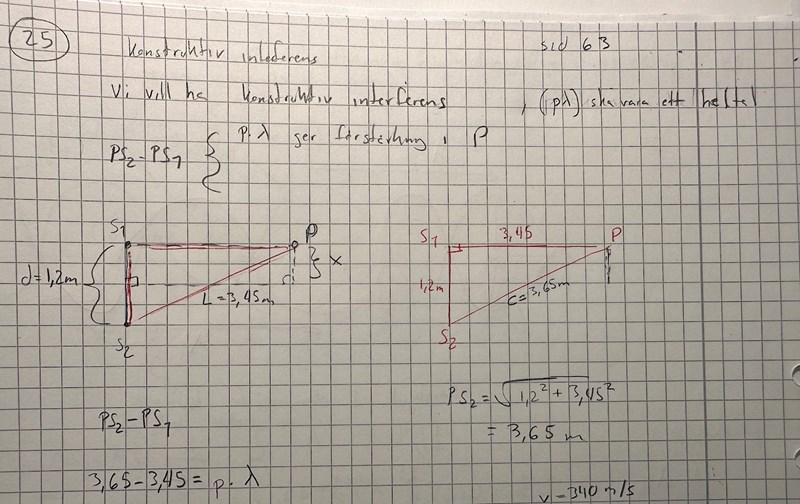 25
Konstruktiv inteferens
sid 63
Vi vill ha konstruktiv interferens, (pλ) ska vara ett heltal
PS₂-PS₁ { p.λ ger förstärkning i P
S₁ P
d=1,2m
x
L=3,45m
S₂
S₁ 3,45 P
1,2m
C=3,65m
S₂
PS₂ = √1,2² + 3,45²
= 3,65 m
PS₂-PS₁
3,65-3,45 = p. λ
v=340 m/s